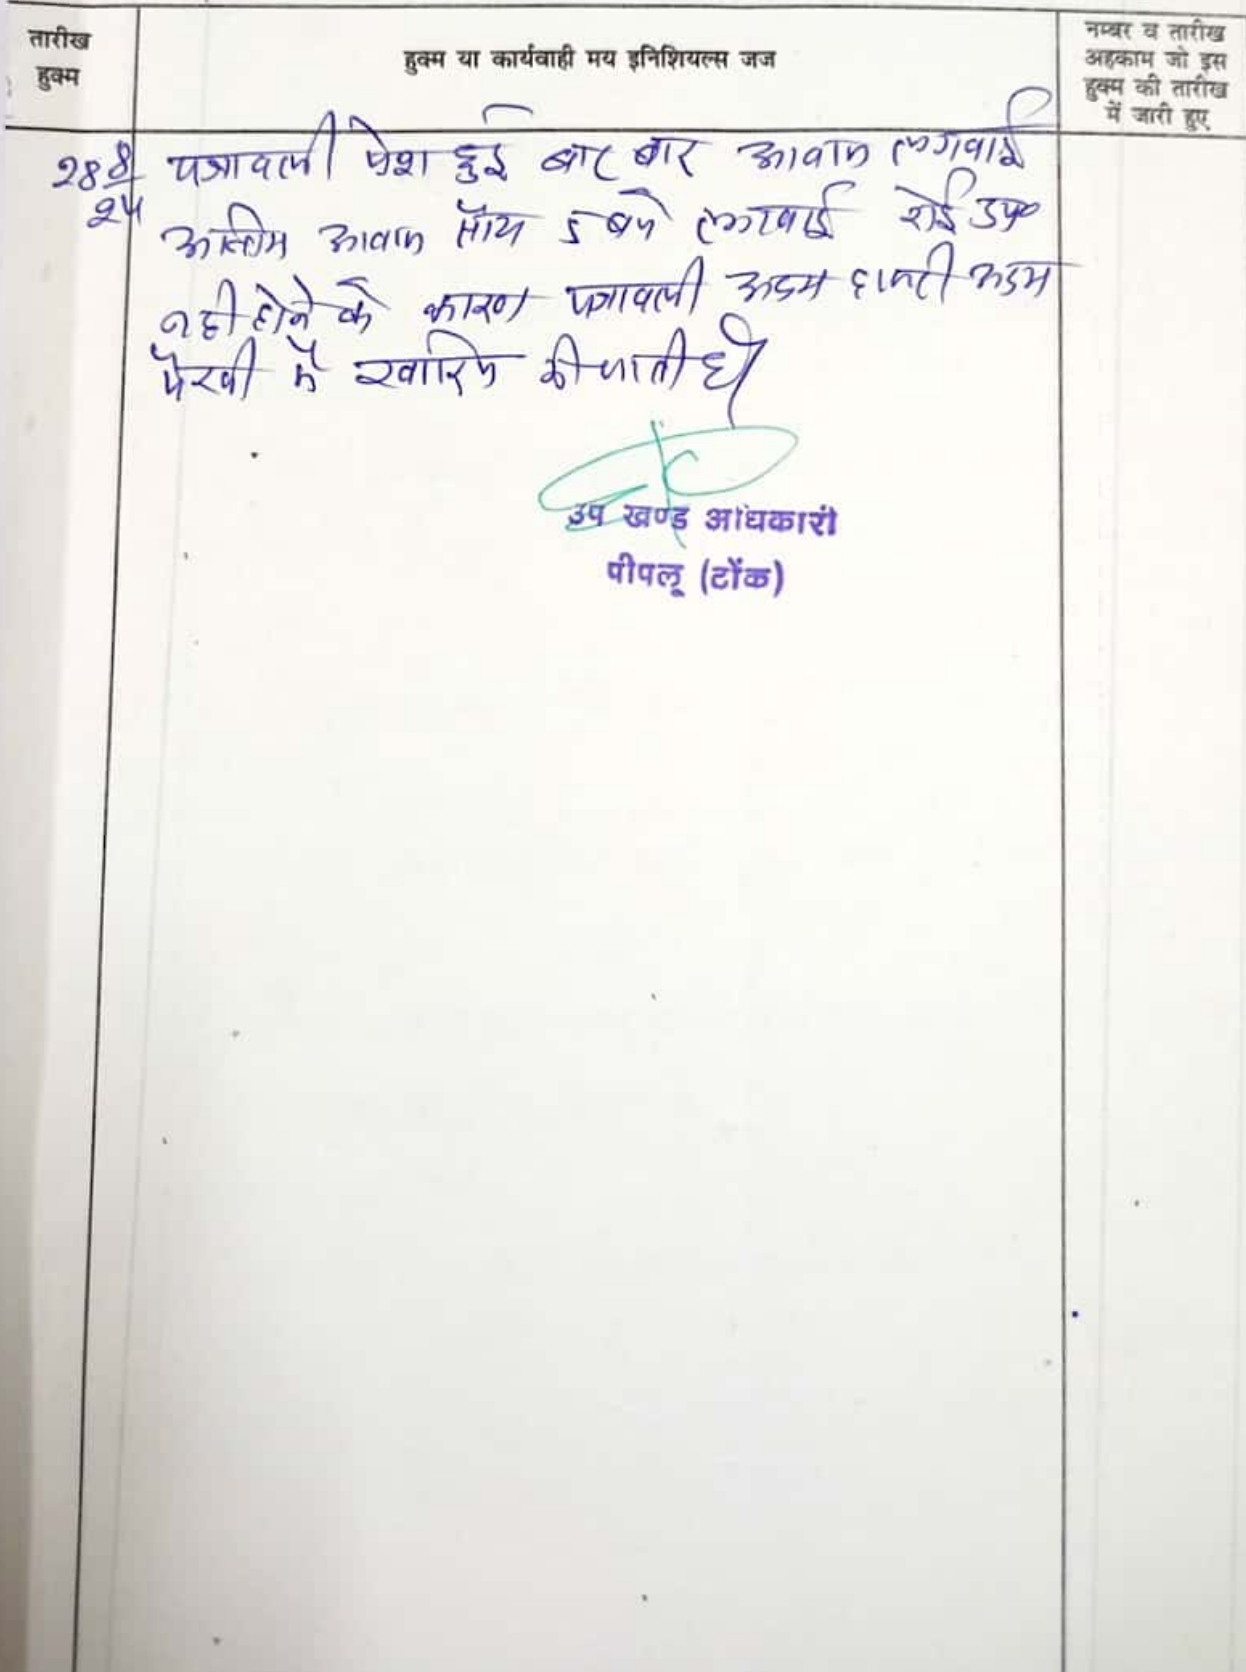 तारीख
हुक्म
हुक्म या कार्यवाही मय इनिशियल्स जज
नम्बर व तारीख
अहकाम जो इस
हुक्म की तारीख
में जारी हुए
28/8/24
पत्रावली पेश हुई बार बार आवाज लगवाई
अन्तिम आवाज सांय 5 बजे लगवाई कोई उप०
नही होने के कारण पत्रावली अदम हाजरी अदम
पैरवी में खारिज की जाती है।
उप खण्ड अधिकारी
पीपलू (टोंक)